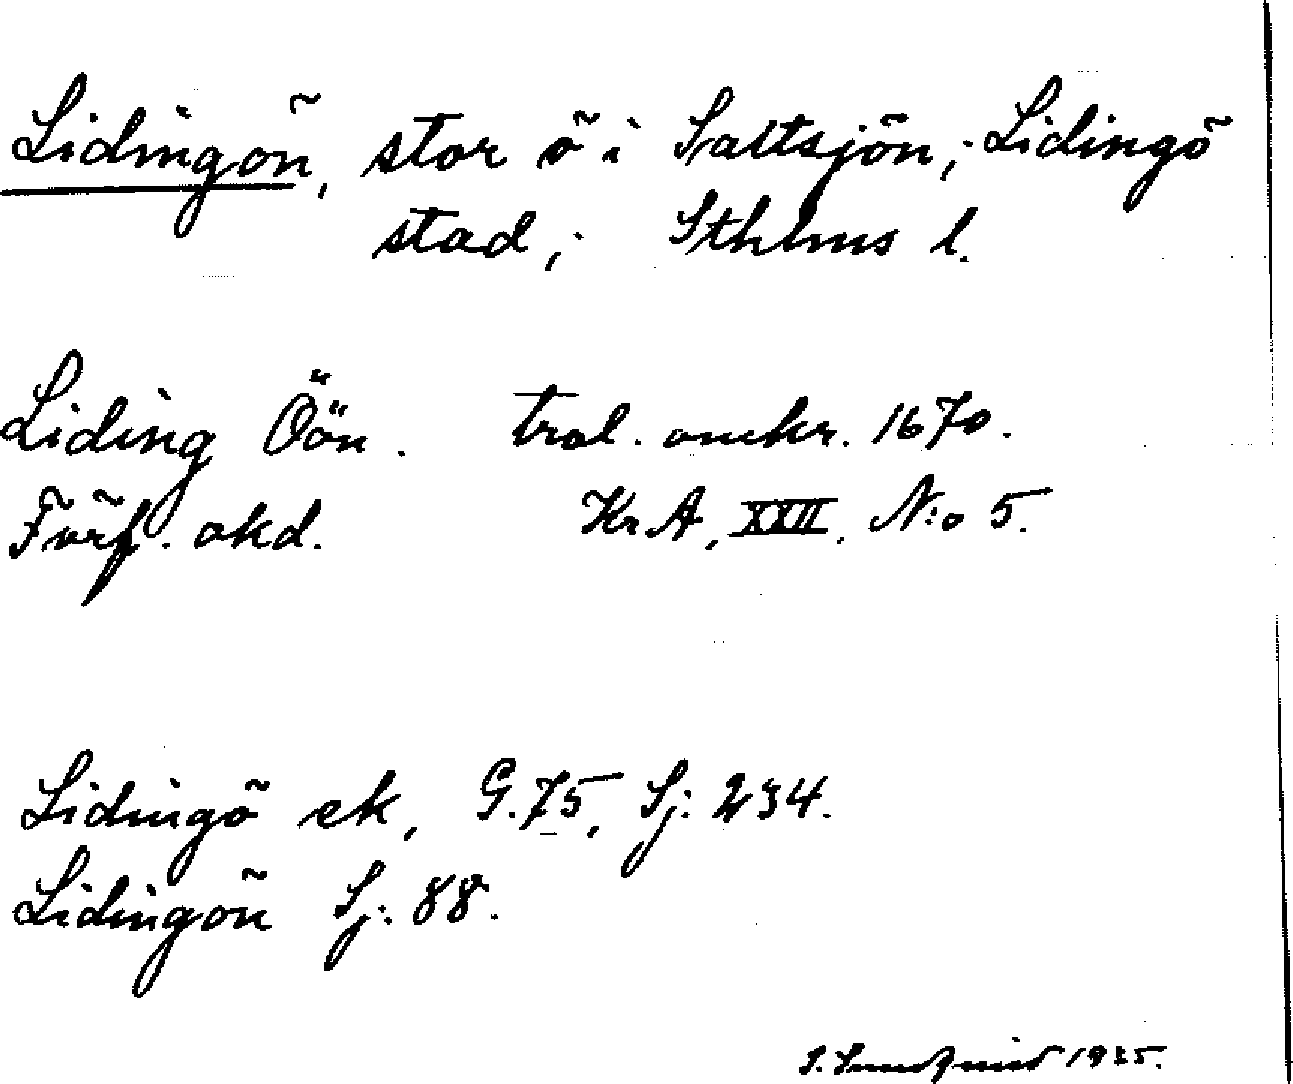 Lidingön, stor ö i Saltsjön, Lidingö
stad, Sthlms l.
Liding Öön. trol. omkr. 1670.
Förf. okd. KrA, XXII, N:o 5.
Lidingö ek, G.75, Sj: 234.
Lidingön Sj: 88.
1935.